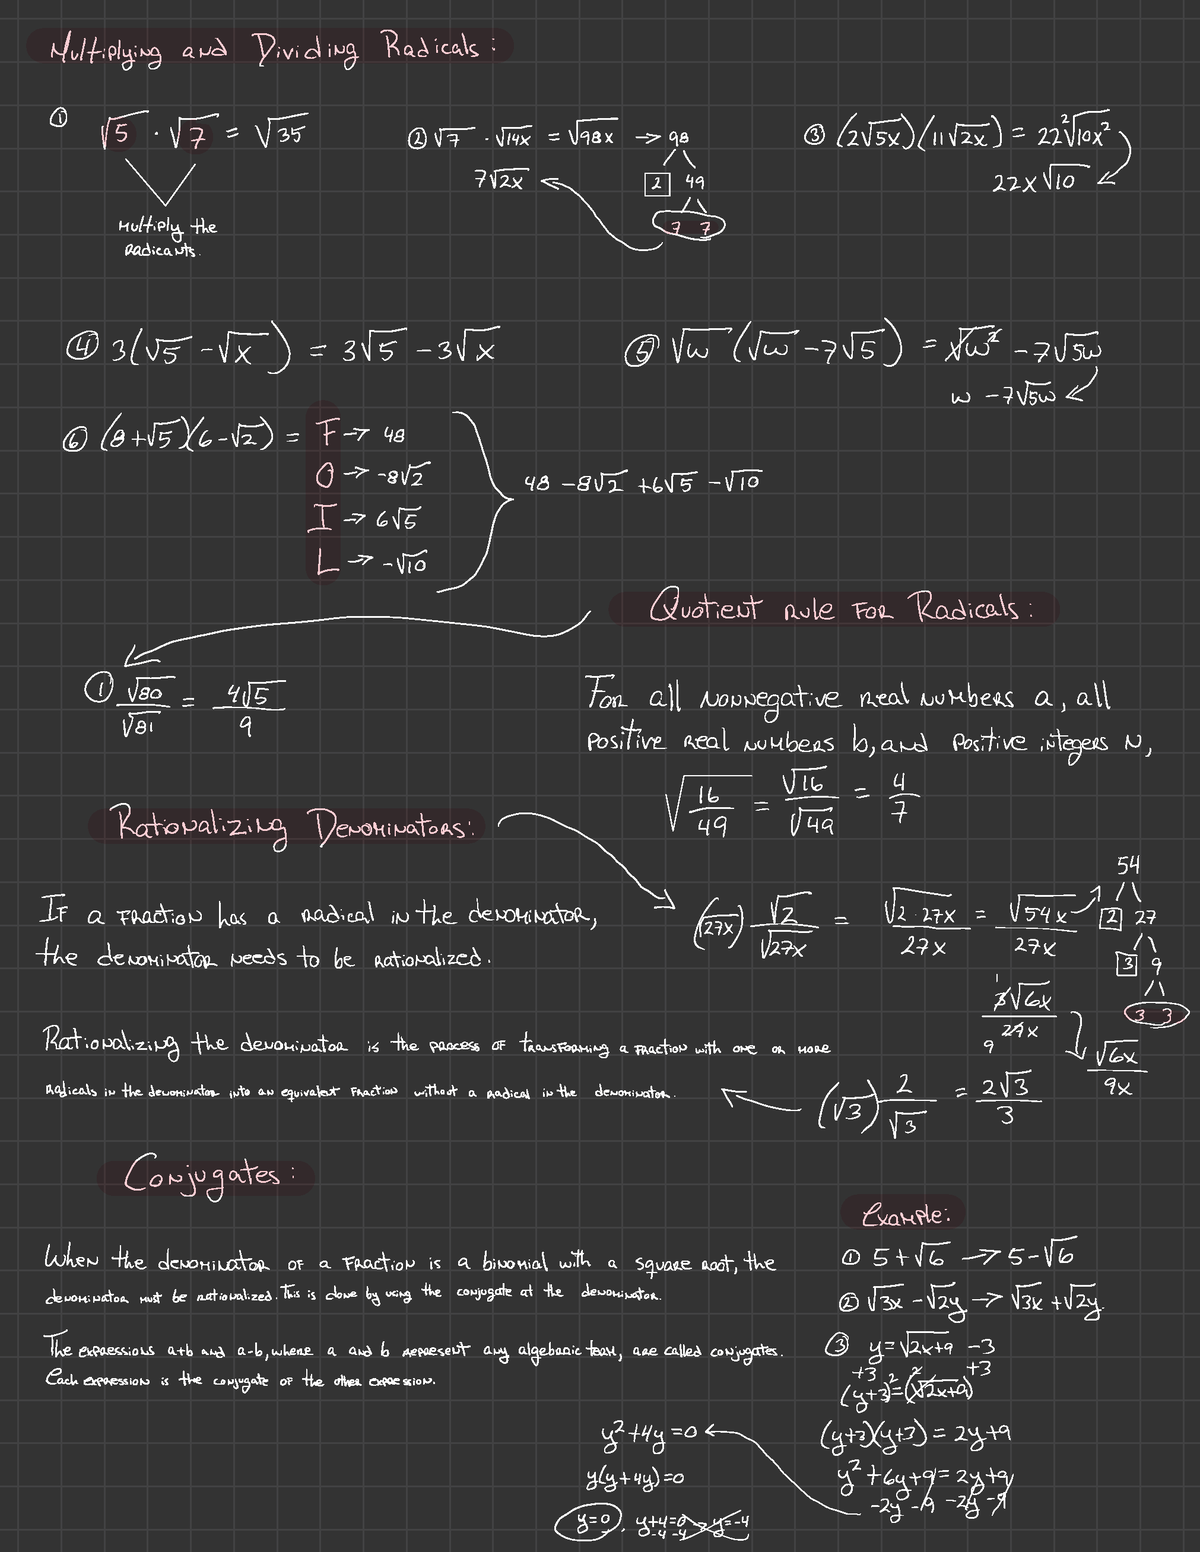 Multiplying and Dividing Radicals:
① √5 · √7 = √35
Multiply the
radicants.
② √7 · √14x = √98x → 98
7√2x
2 49
7 7
③ (2√5x)(11√2x) = 22²√10x²
22x√10
④ 3(√5 - √x) = 3√5 - 3√x
⑤ √w (√w - 7√5) = √w² - 7√5w
w - 7√5w
⑥ (8+√5)(6-√2) = F → 48
O → -8√2
I → 6√5
L → -√10
48 - 8√2 + 6√5 - √10
Quotient rule for Radicals:
① √80/√81 = 4√5/9
For all nonnegative real numbers a, all
positive real numbers b, and positive integers n,
√16/49 = √16/√49 = 4/7
Rationalizing Denominators:
If a fraction has a radical in the denominator,
the denominator needs to be rationalized.
(√27x) √2/√27x = √2·27x/27x = √54x/27x
54
2 27
3 9
3 3
1
3√6x/27x
9
√6x/9x
Rationalizing the denominator is the process of transforming a fraction with one or more
radicals in the denominator into an equivalent fraction without a radical in the denominator.
(√3) 2/√3 = 2√3/3
Conjugates:
When the denominator of a fraction is a binomial with a square root, the
denominator must be rationalized. This is done by using the conjugate at the denominator.
The expressions a+b and a-b, where a and b represent any algebraic term, are called conjugates.
Each expression is the conjugate of the other expression.
Example:
① 5+√6 → 5-√6
② √3x - √2y → √3x + √2y
③ y = √2x+9 - 3
+3 +3
(y+3)² = (√2x+9)²
(y+3)(y+3) = 2y+9
y² + 6y + 9 = 2y + 9
-2y -9 -2y -9
y² + 4y = 0
y(y+4y) = 0
y=0, y+4=0 → y=-4
-4 -4